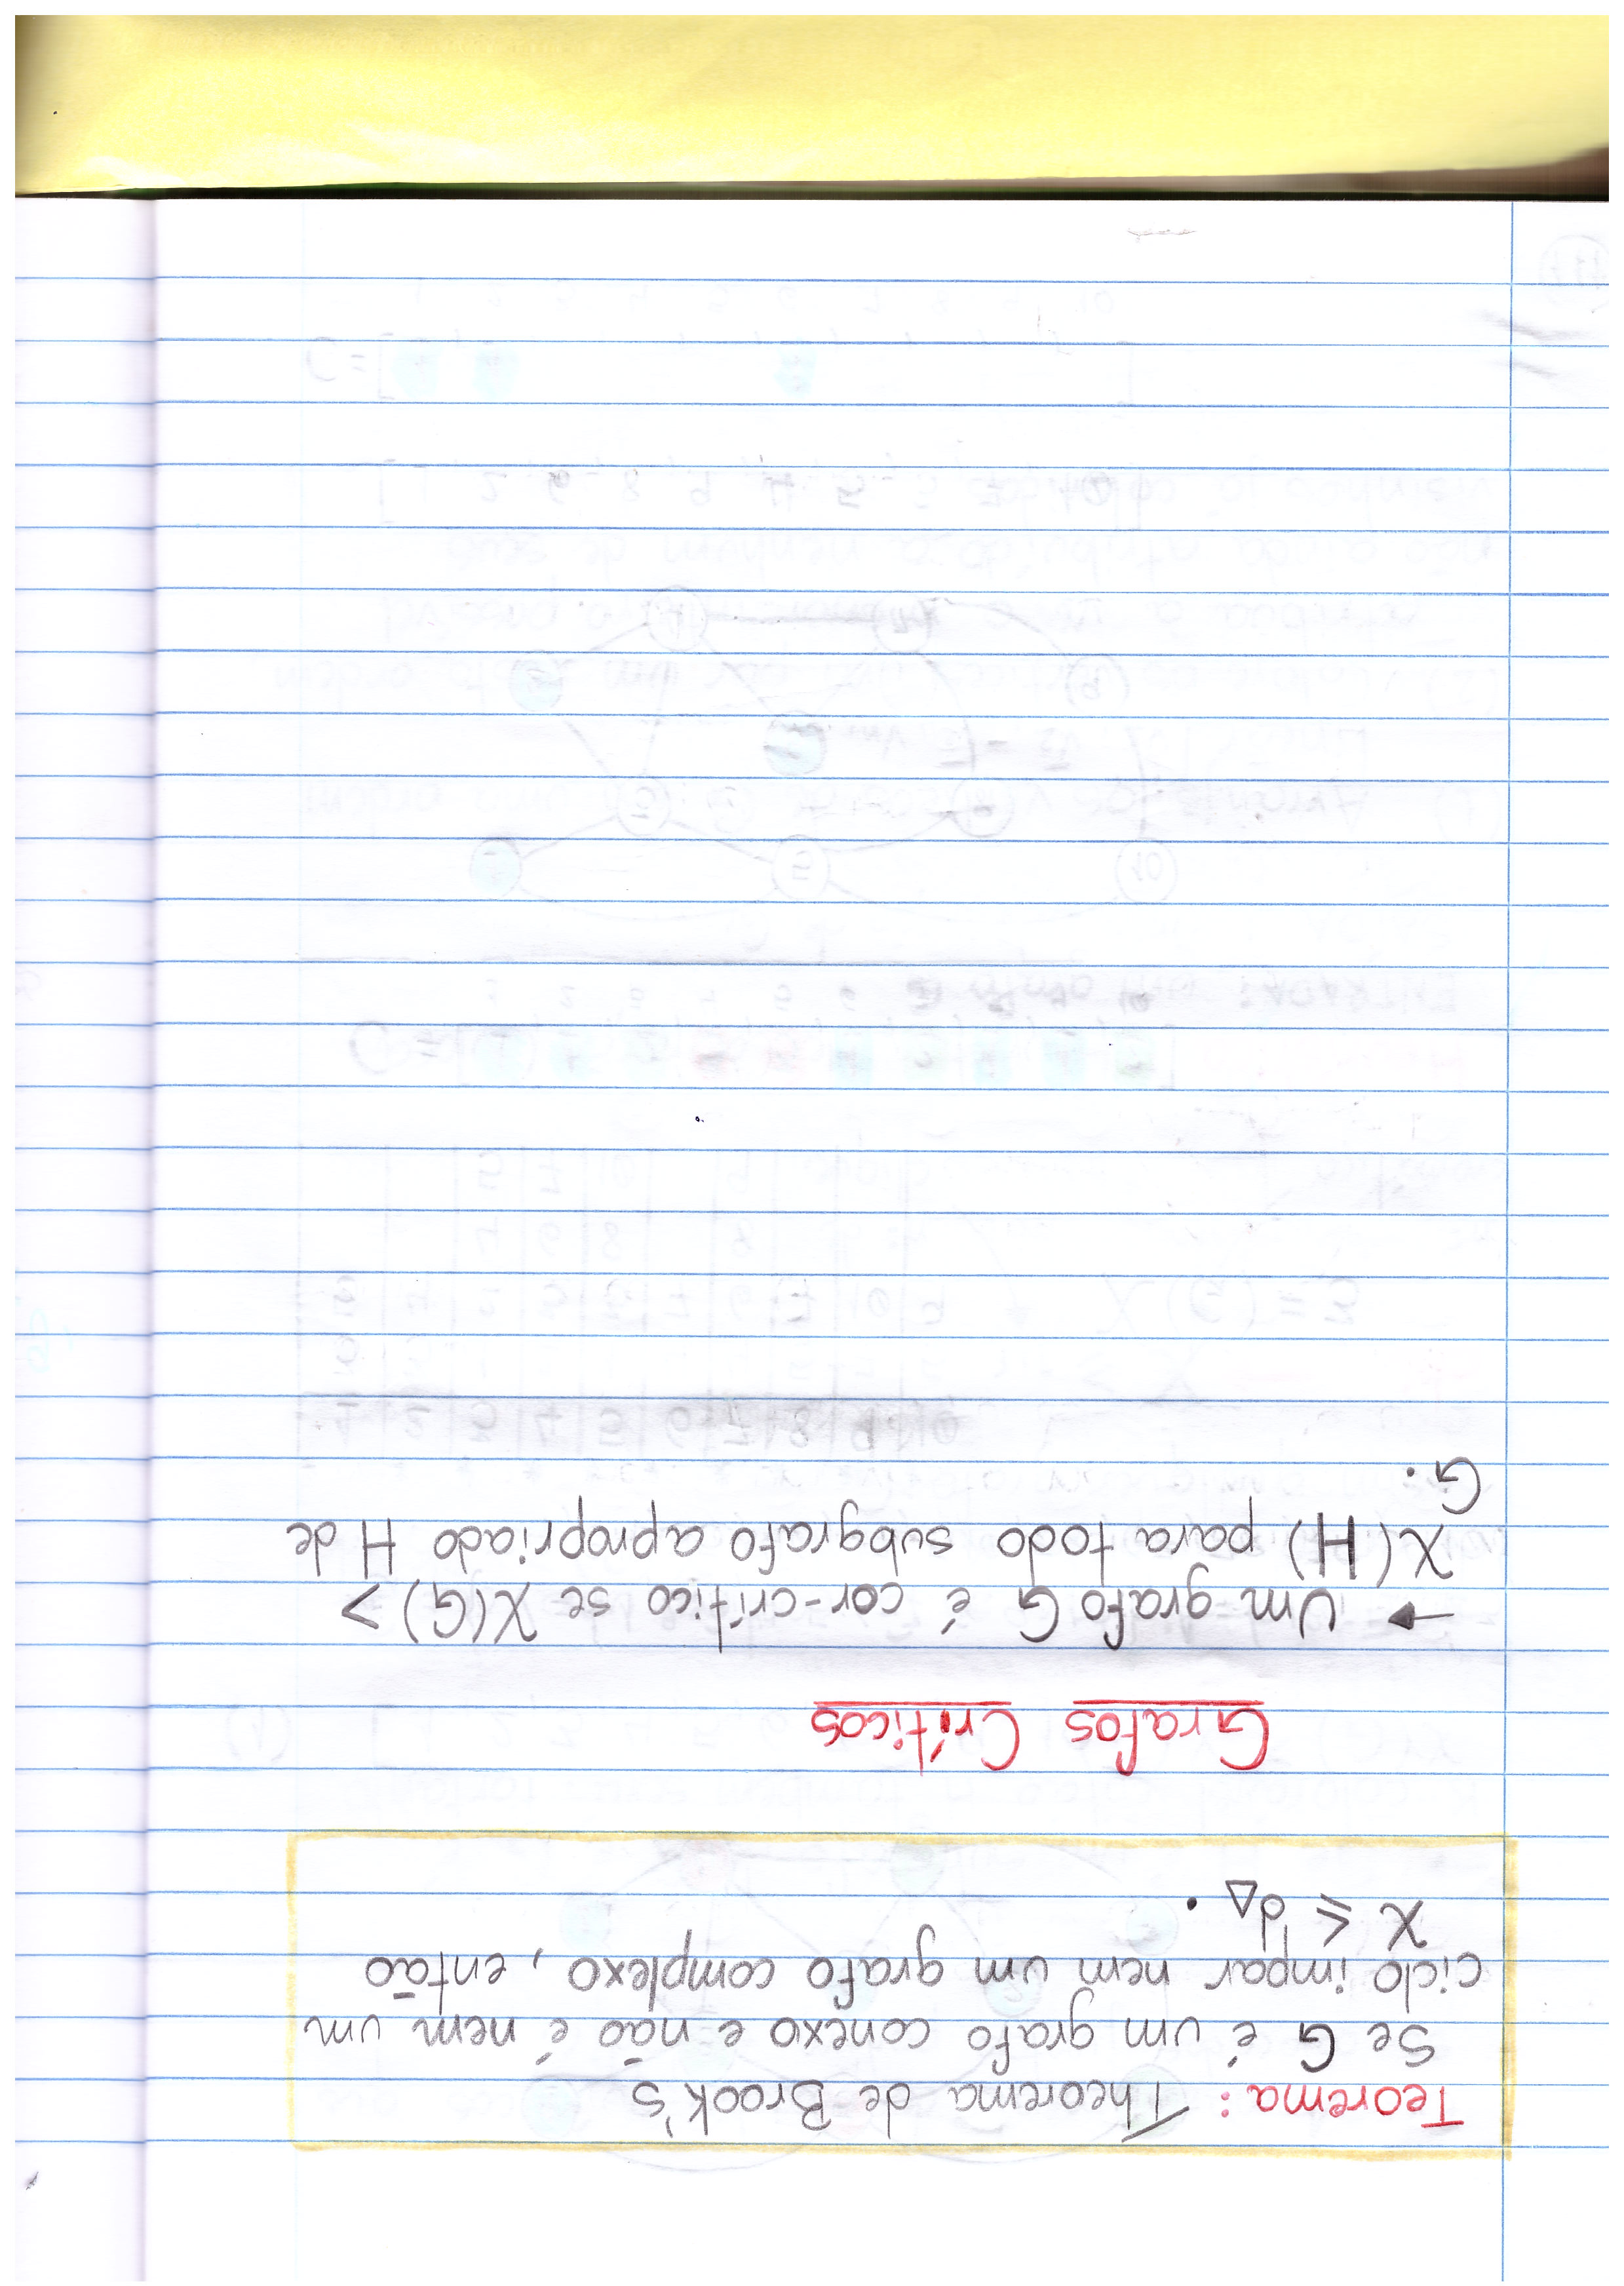 Teorema: Theorema de Brook's
Se G é um grafo conexo e não é nem um
ciclo impar nem um grafo complexo, então
χ ⩽ d△.
Grafos Críticos
→ Um grafo G é cor-crítico se χ(G) >
χ(H) para todo subgrafo apropriado H de
G.